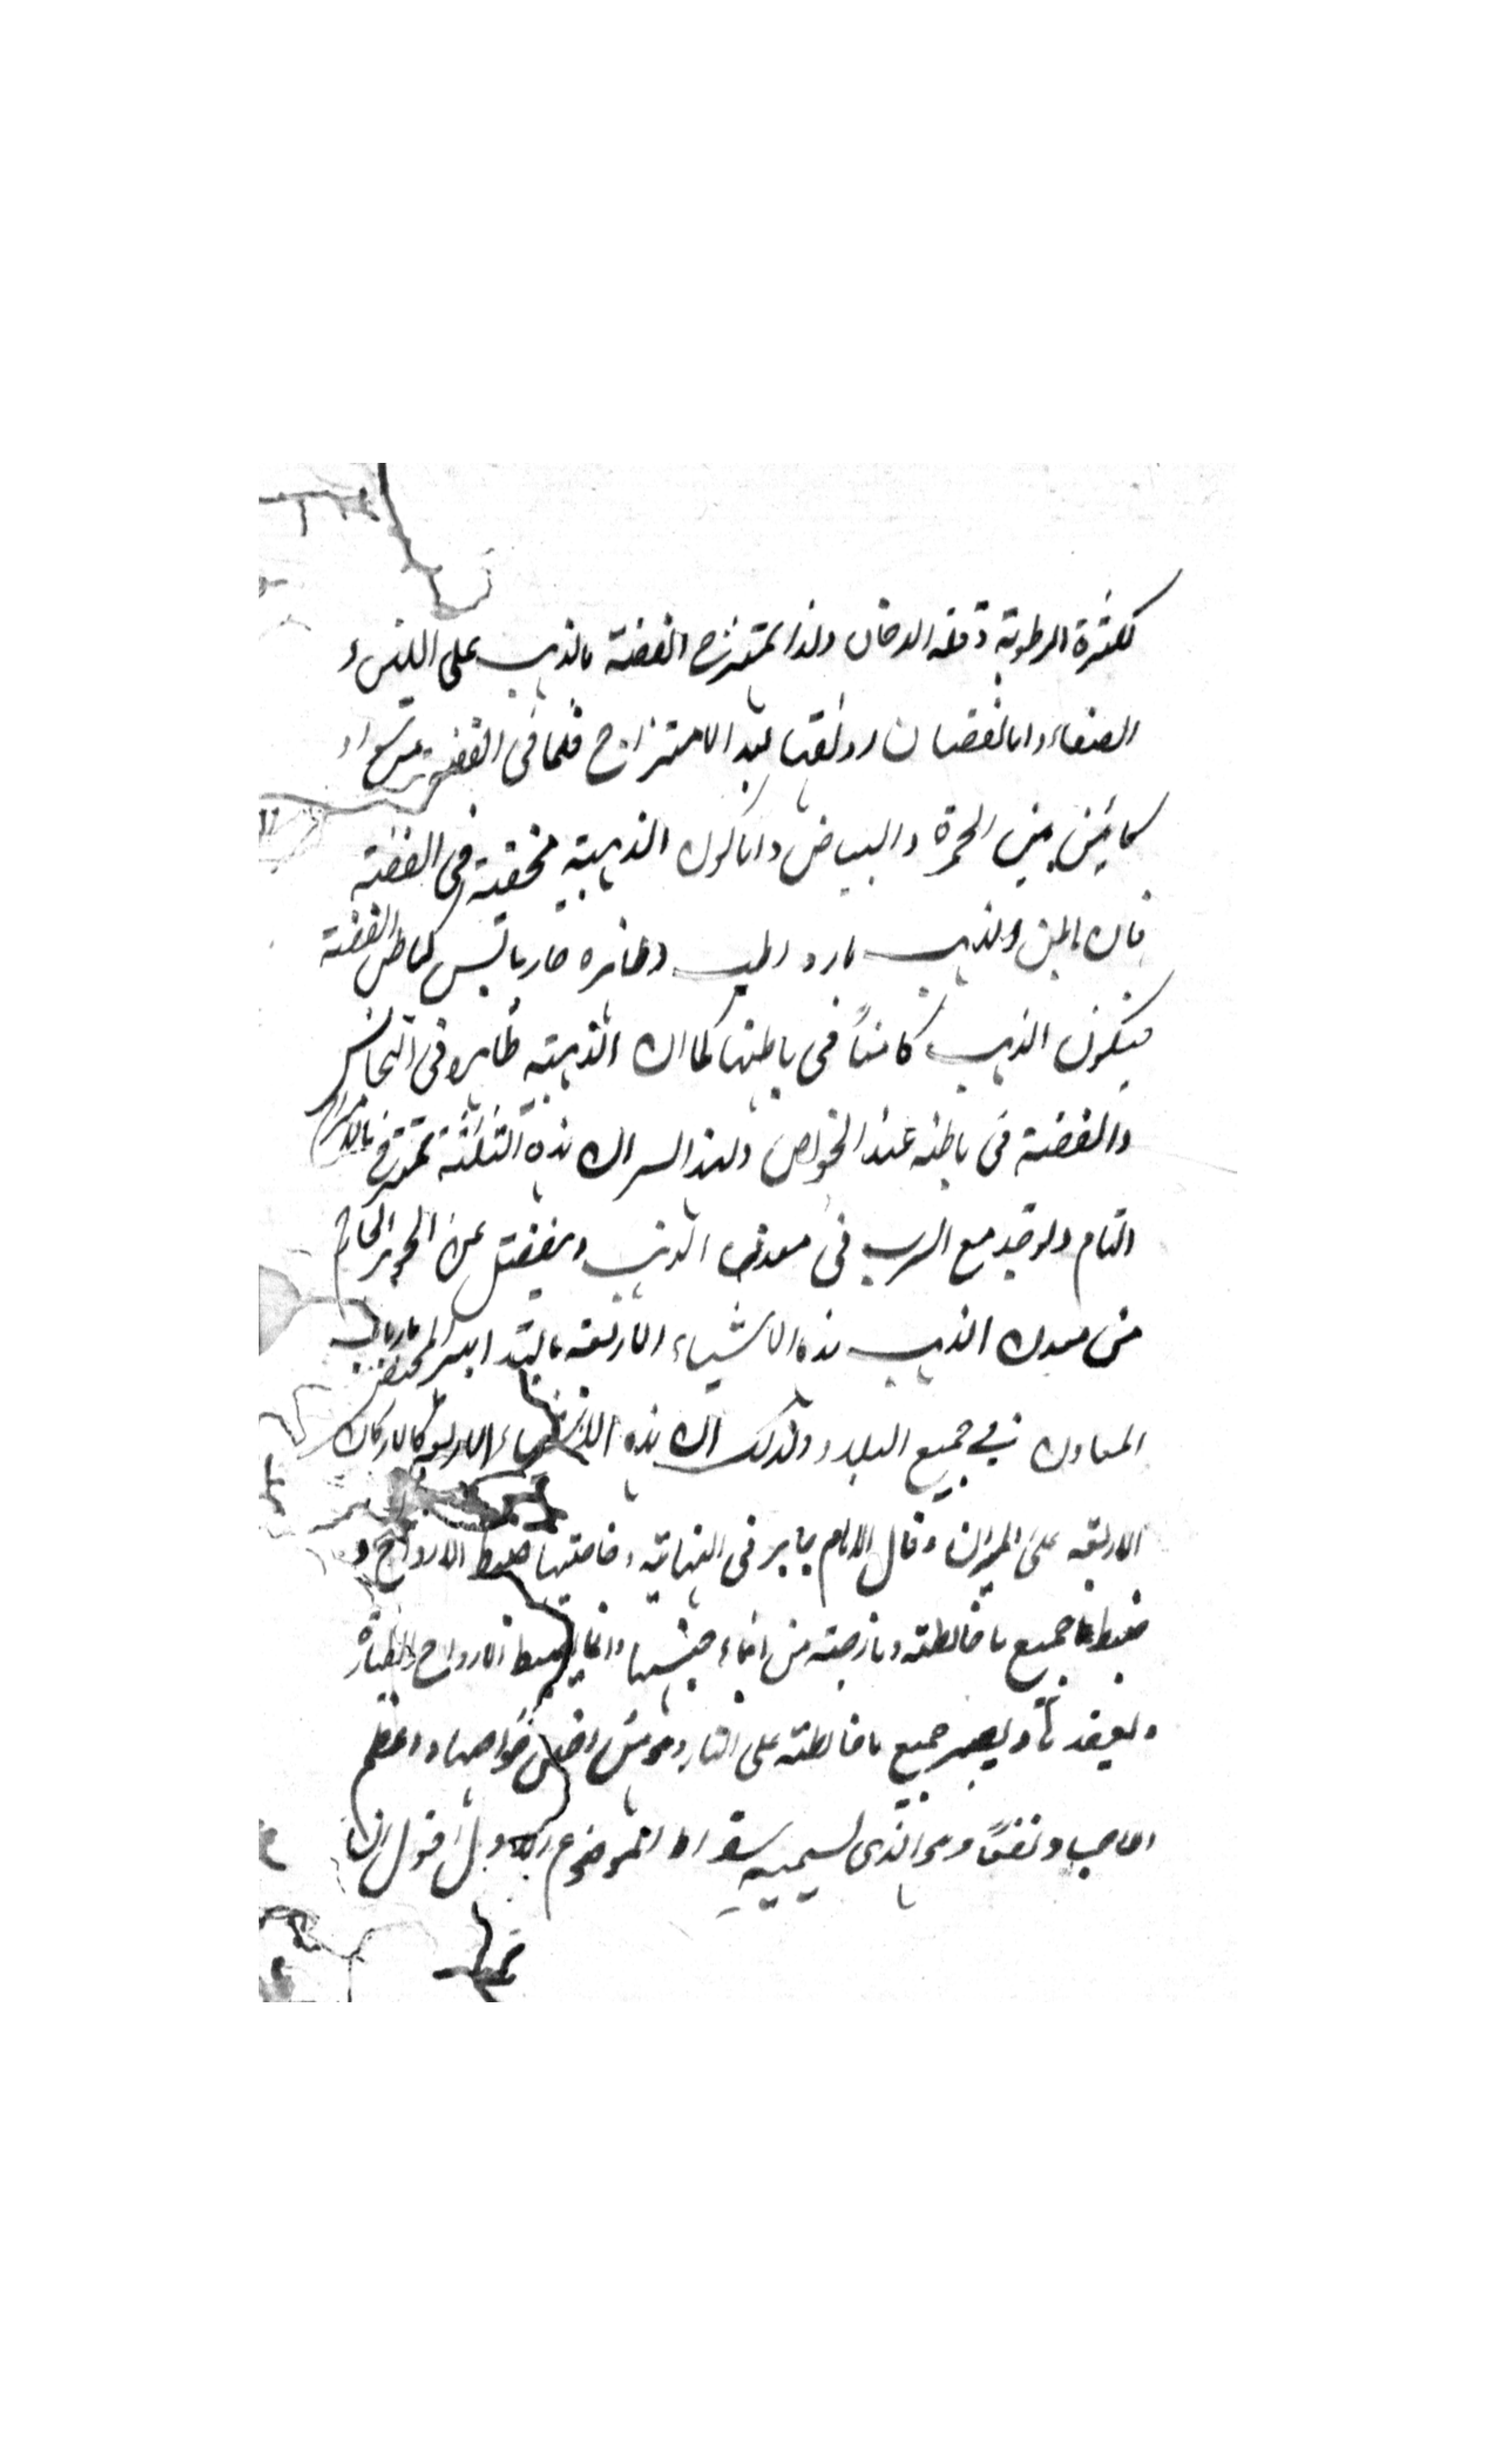 لكثرة الرطوبة وقلة الدخان ولذا يمتزج الفضة بالذهب على اللين و
الصفاء واما نقصان رونقها بعد الامتزاج فلما في الفضة من سواد
كائن بين الحمرة والبياض واما كون الذهبية مخفية في الفضة
فان باطن الذهب بارد رطب وظاهره حار يابس كباطن الفضة
فيكون الذهب كامنا في باطنها كما ان الذهبية ظاهرة في النحاس
والفضة في باطنه عند الخواص ولهذا السر ان هذه الثلثة تمتزج
التام ولوجد مع السرب في معدن الذهب وينفصل عن الحجر
من معدن الذهب هذه الاشياء الاربعة بالتدابير
المعادن في جميع البلاد ولذلك ان هذه الاشياء الاربعة كالاركان
الاربعة على الميزان وقال الامام جابر في النهاية وخاصيتها ضبط الارواح و
ضبط جميع ما خالطته ومازجته من ابناء جنسها وانها يضبط الارواح الطيارة
ويعقدها ويصبر جميع ما خالطته على النار وهو من اخص خواصها واعظم
نفعا وهو الذي يسميه سقراط الموضوع الاول اقول